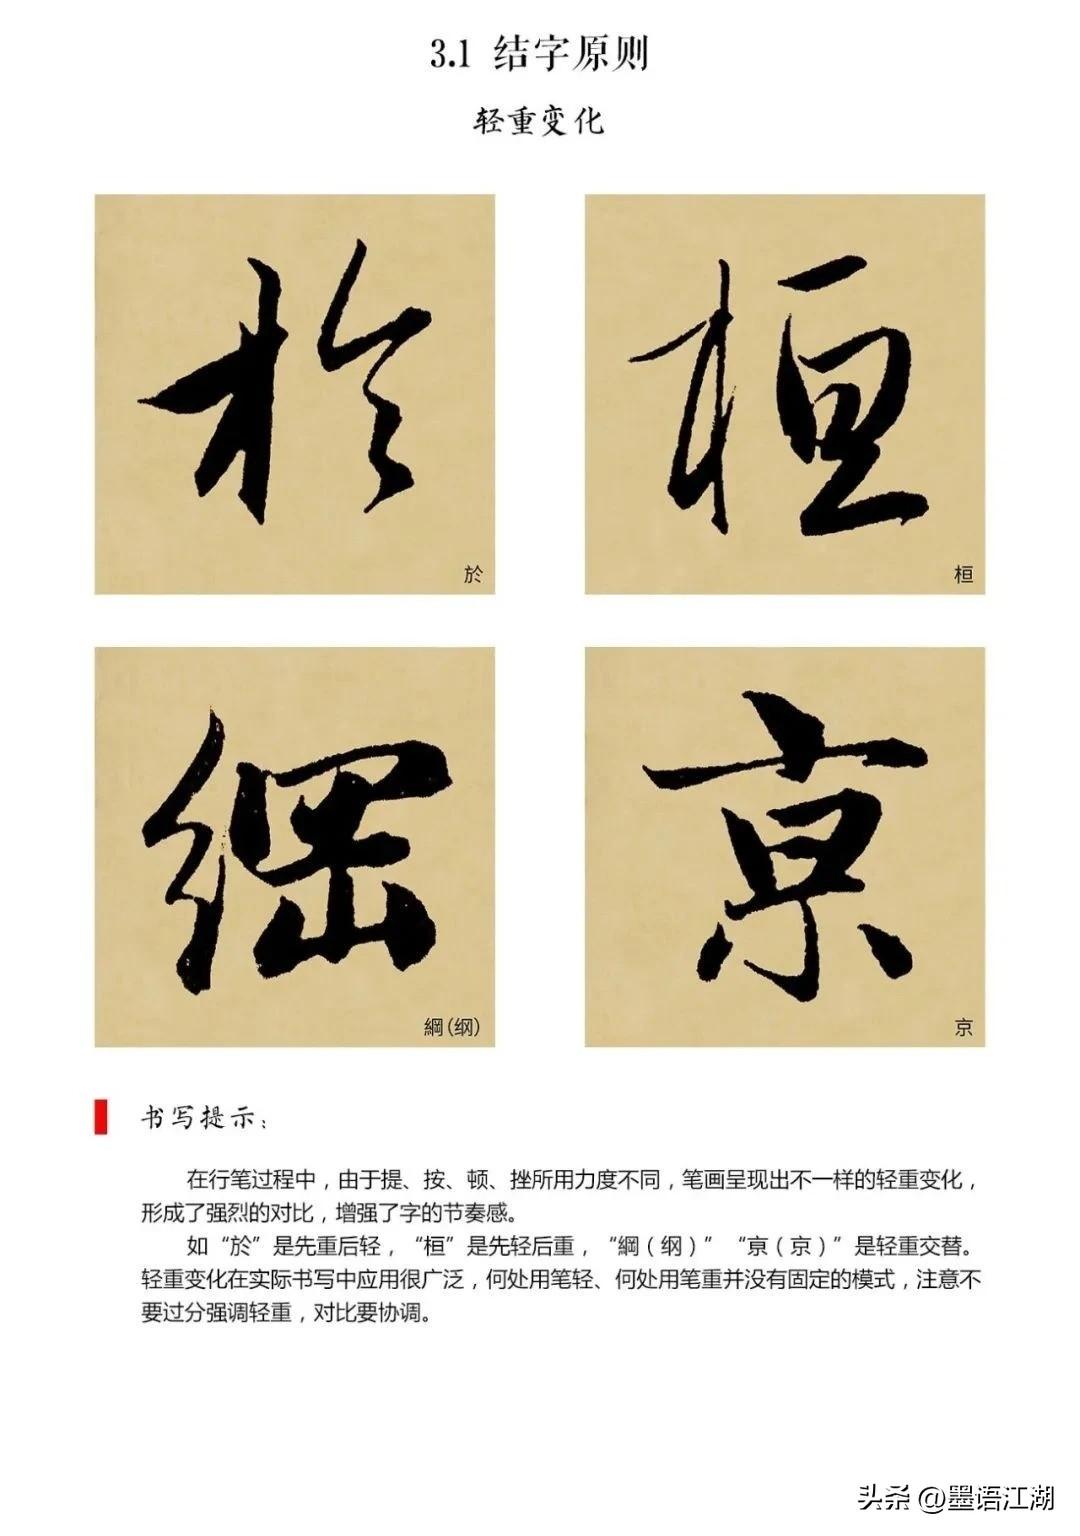 3.1 结字原则
轻重变化
於
桓
於
桓
綱
亰
綱(纲)
京
书写提示：
在行笔过程中，由于提、按、顿、挫所用力度不同，笔画呈现出不一样的轻重变化，
形成了强烈的对比，增强了字的节奏感。
如“於”是先重后轻，“桓”是先轻后重，“綱（纲）”“亰（京）”是轻重交替。
轻重变化在实际书写中应用很广泛，何处用笔轻、何处用笔重并没有固定的模式，注意不
要过分强调轻重，对比要协调。
头条 @墨语江湖